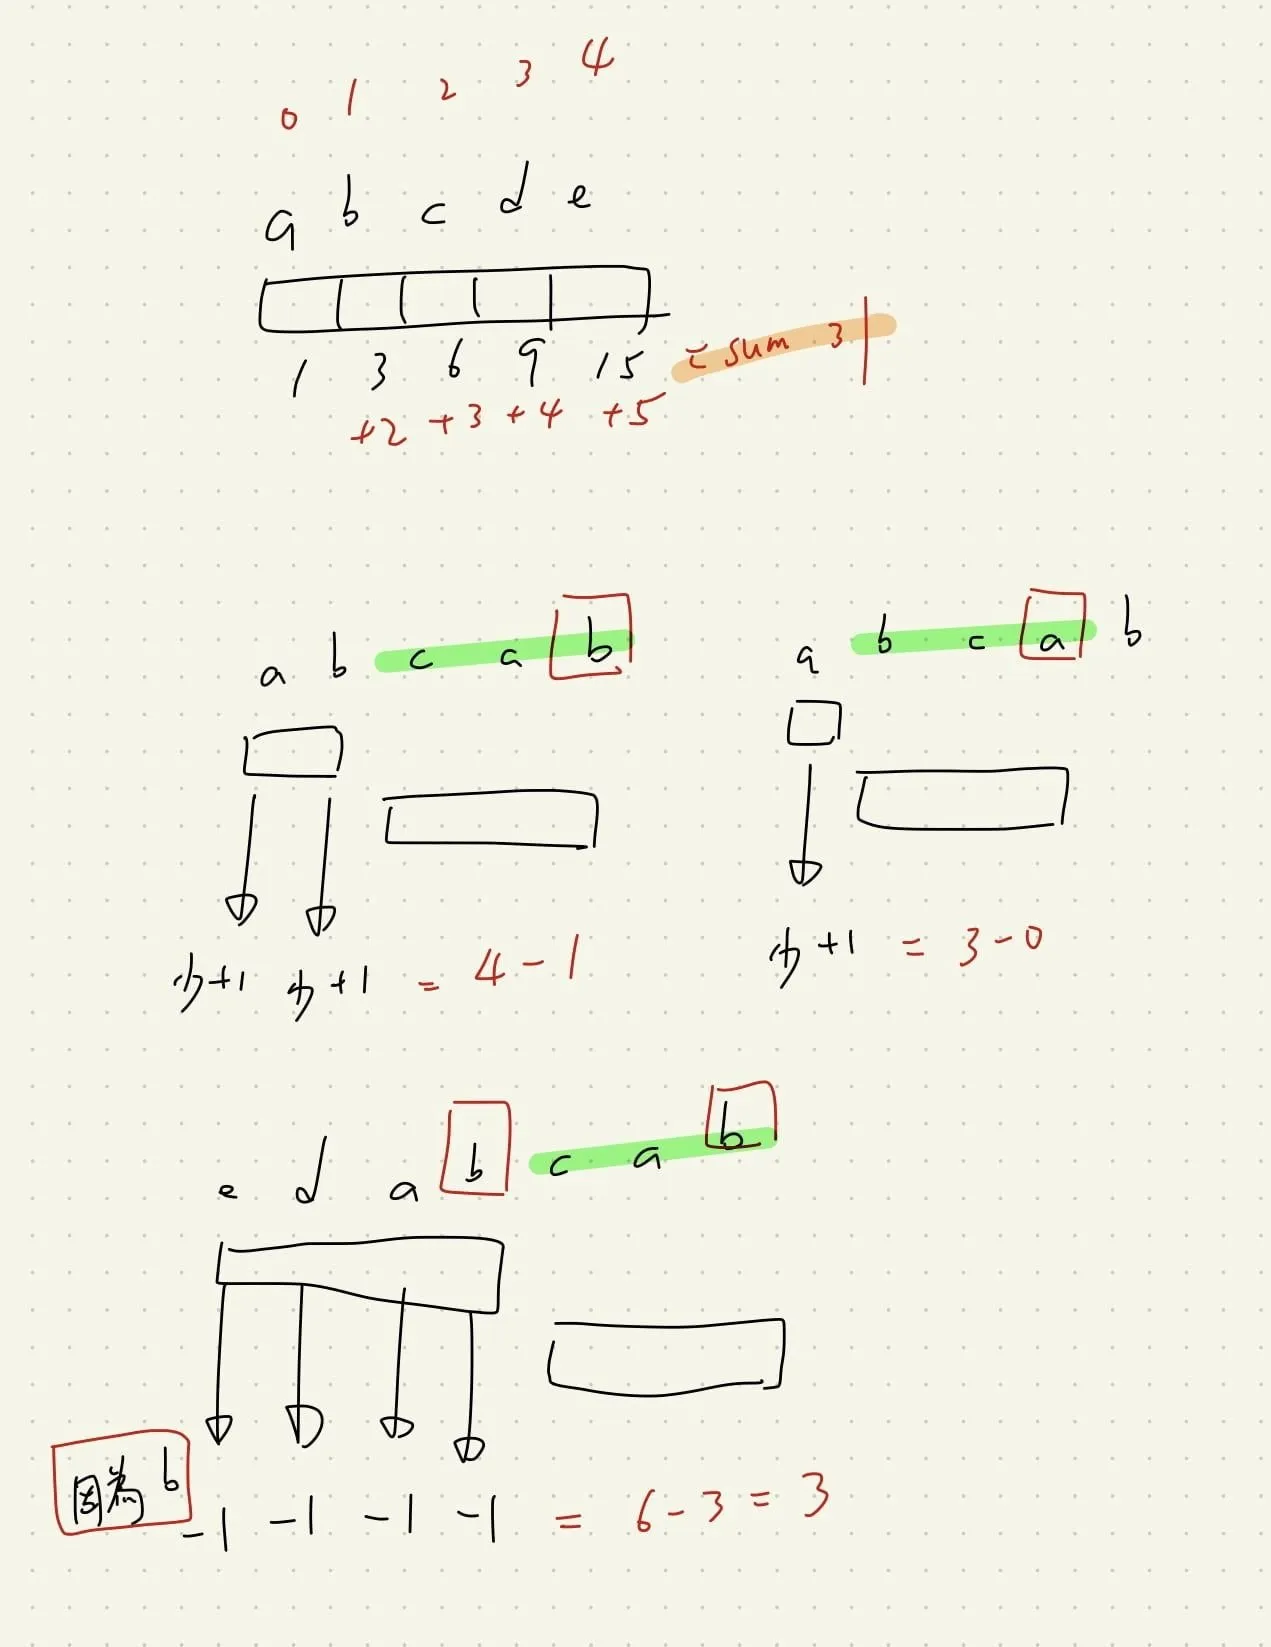 0 1 2 3 4
a b c d e
1 3 6 9 15 = sum 3
+2 +3 +4 +5
a b c a b
a b c a b
少+1 少+1 = 4-1
少+1 = 3-0
e d a b c a b
因為 b
-1 -1 -1 -1 = 6-3=3